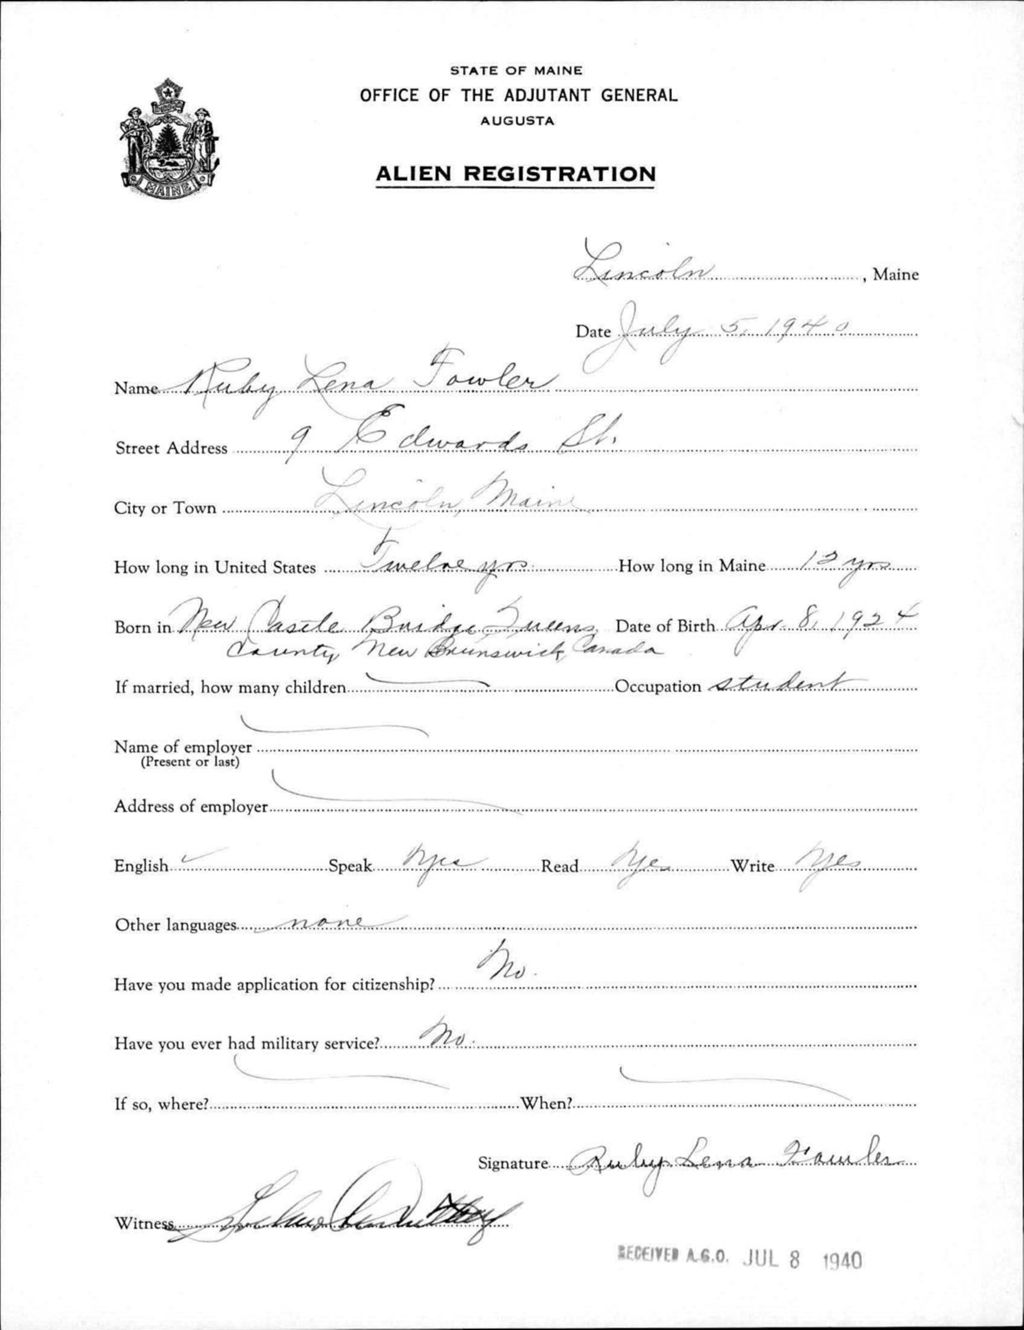 STATE OF MAINE
OFFICE OF THE ADJUTANT GENERAL
AUGUSTA
ALIEN REGISTRATION
MAINE
Lincoln, Maine
Date July 5, 1940
Name Ruby Lena Fowler
Street Address 9 Edwards St.
City or Town Lincoln, Maine
How long in United States Twelve yrs. How long in Maine 12 yrs
Born in New Castle Bridge, Queens Date of Birth Apr. 8, 1924
County, New Brunswick, Canada
If married, how many children Occupation student
Name of employer
(Present or last)
Address of employer
English Speak Yes Read Yes Write Yes
Other languages none
Have you made application for citizenship? No.
Have you ever had military service? No.
If so, where? When?
Signature Ruby Lena Fowler
Witness
RECEIVED A.G.O. JUL 8 1940